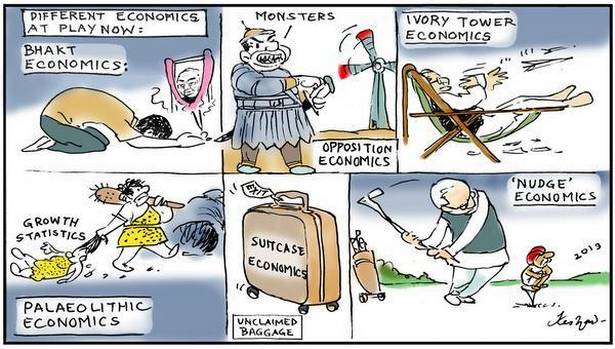 DIFFERENT ECONOMICS
AT PLAY NOW:
BHAKT
ECONOMICS:
MONSTERS
OPPOSITION
ECONOMICS
IVORY TOWER
ECONOMICS
GROWTH
STATISTICS
PALAEOLITHIC
ECONOMICS
SUITCASE
ECONOMICS
UNCLAIMED
BAGGAGE
'NUDGE'
ECONOMICS
2019
Keshav